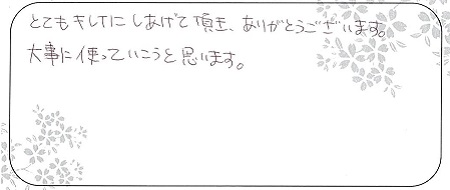 とてもキレイにしあげて頂き、ありがとうございます。
大事に使っていこうと思います。